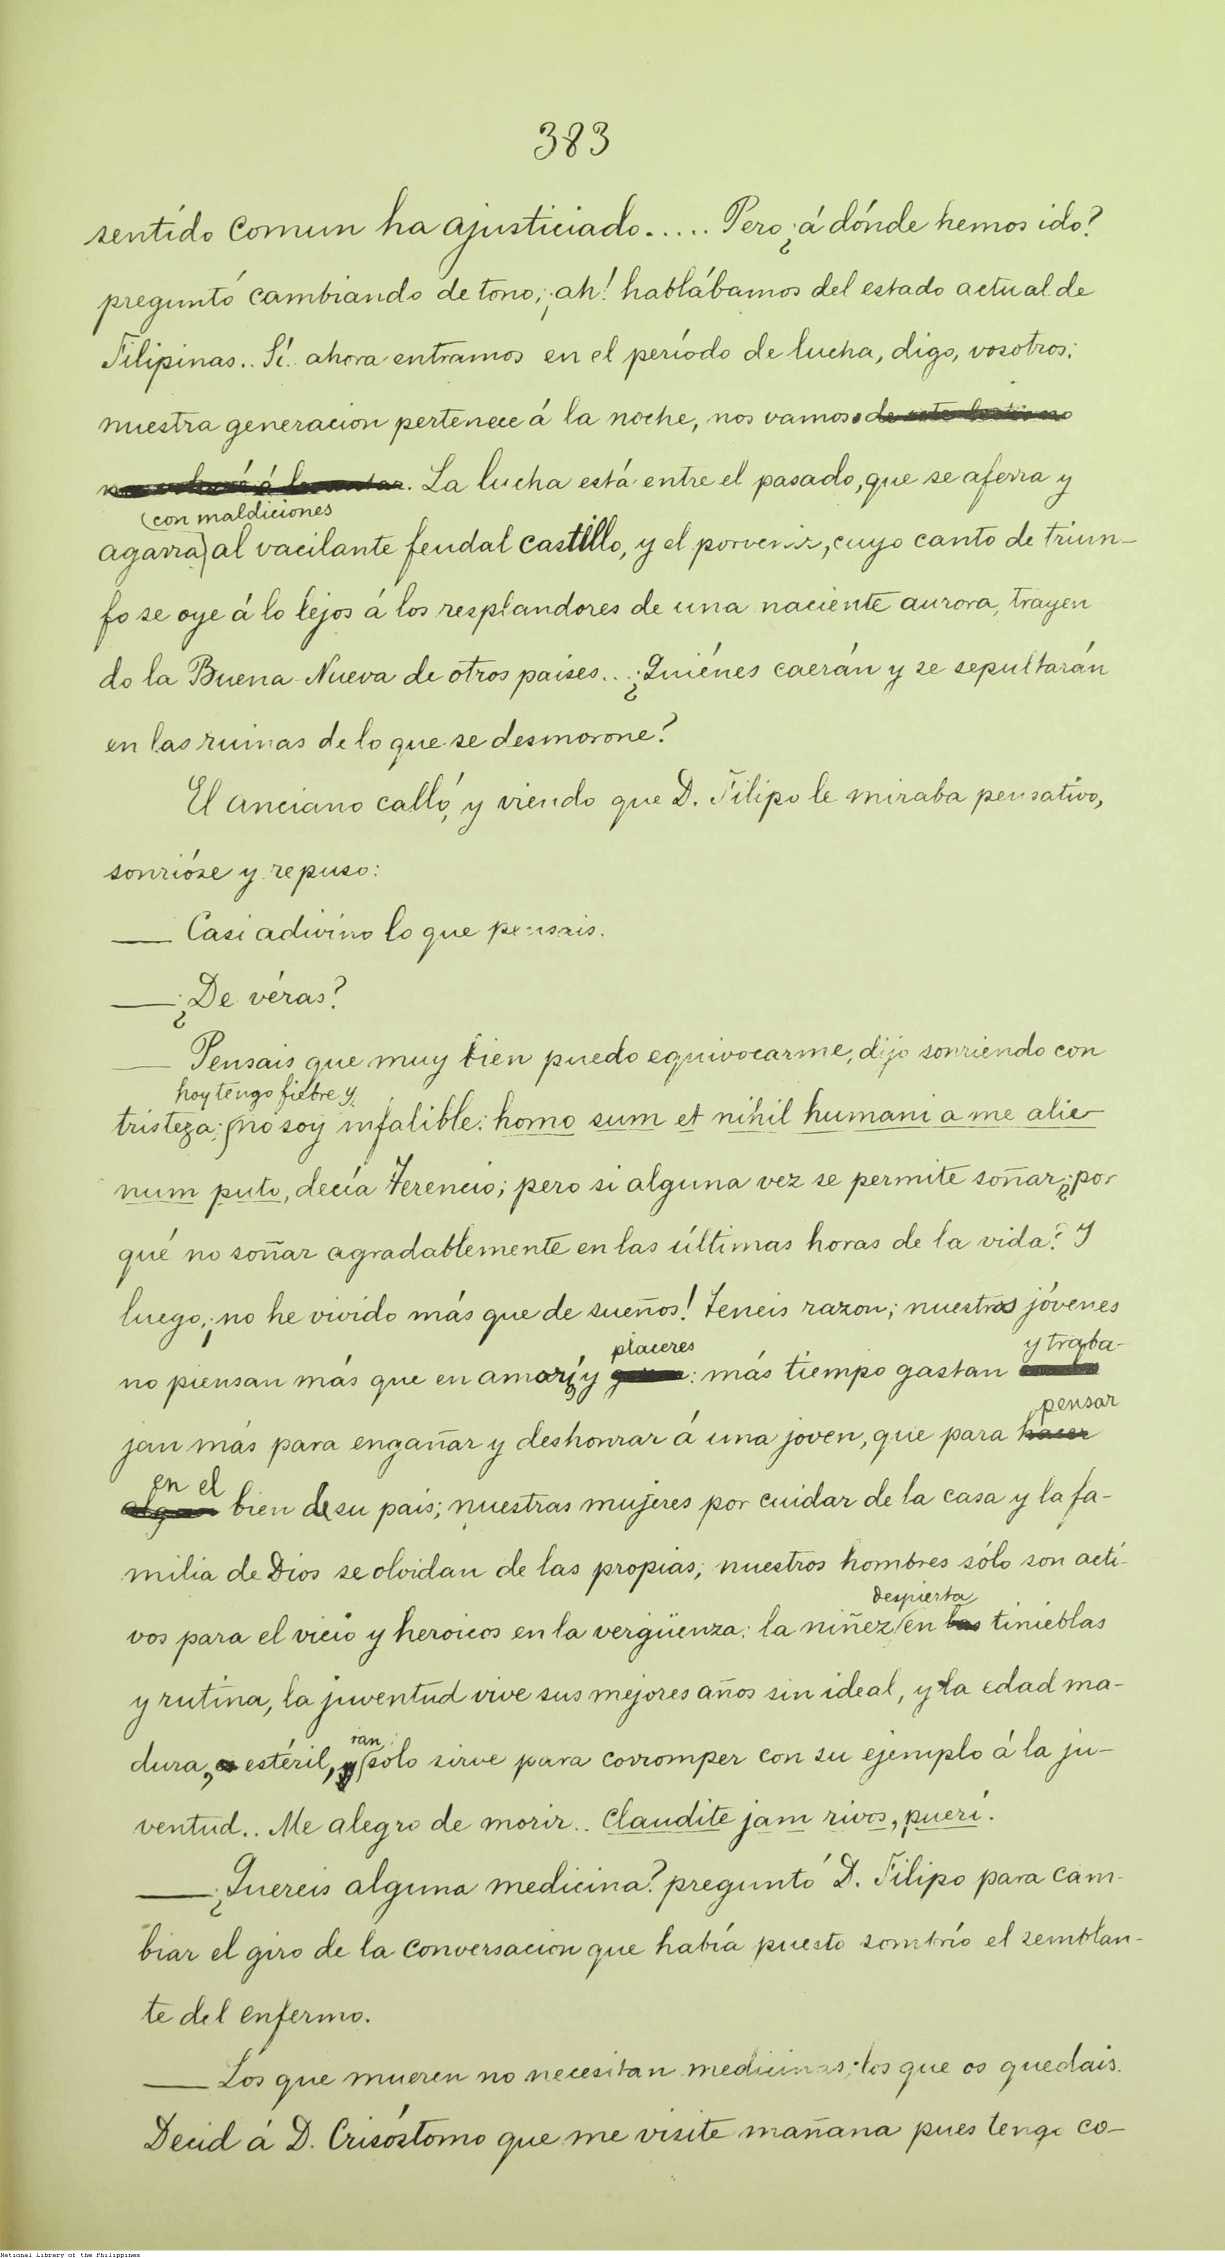 383
sentido comun ha ajusticiado..... Pero ¿á dónde hemos ido?
preguntó cambiando de tono, ¡ah! hablábamos del estado actual de
Filipinas.. Sí.. ahora entramos en el período de lucha, digo, vosotros:
nuestra generacion pertenece á la noche, nos vamos.
La lucha está entre el pasado, que se aferra y
(con maldiciones
agarra) al vacilante feudal castillo, y el porvenir, cuyo canto de triun-
fo se oye á lo lejos á los resplandores de una naciente aurora, trayen
do la Buena-Nueva de otros paises... ¿Quiénes caerán y se sepultarán
en las ruinas de lo que se desmorone?
El anciano calló, y viendo que D. Filipo le miraba pensativo,
sonrióse y repuso:
— Casi adivino lo que pensais.
— ¿De véras?
— Pensais que muy bien puedo equivocarme, dijo sonriendo con
hoy tengo fiebre y
tristeza; no soy infalible: homo sum et nihil humani a me alie-
num puto, decía Terencio; pero si alguna vez se permite soñar ¿por
qué no soñar agradablemente en las últimas horas de la vida? Y
luego, ¡no he vivido más que de sueños! Teneis razon; nuestros jóvenes
placeres y traba-
no piensan más que en amorí y : más tiempo gastan
pensar
jan más para engañar y deshonrar á una joven, que para hacer
en el
bien de su pais; nuestras mujeres por cuidar de la casa y la fa-
milia de Dios se olvidan de las propias; nuestros hombres sólo son acti-
despierta
vos para el vicio y heroicos en la vergüenza: la niñez en las tinieblas
y rutina, la juventud vive sus mejores años sin ideal, y la edad ma-
ran
dura, estéril, sólo sirve para corromper con su ejemplo á la ju-
ventud.. Me alegro de morir.. Claudite jam rivos, pueri.
— ¿Quereis alguna medicina? preguntó D. Filipo para cam-
biar el giro de la conversacion que había puesto sombrío el semblan-
te del enfermo.
— Los que mueren no necesitan medicinas; los que os quedais.
Decid á D. Crisóstomo que me visite mañana pues tengo co-
National Library of the Philippines